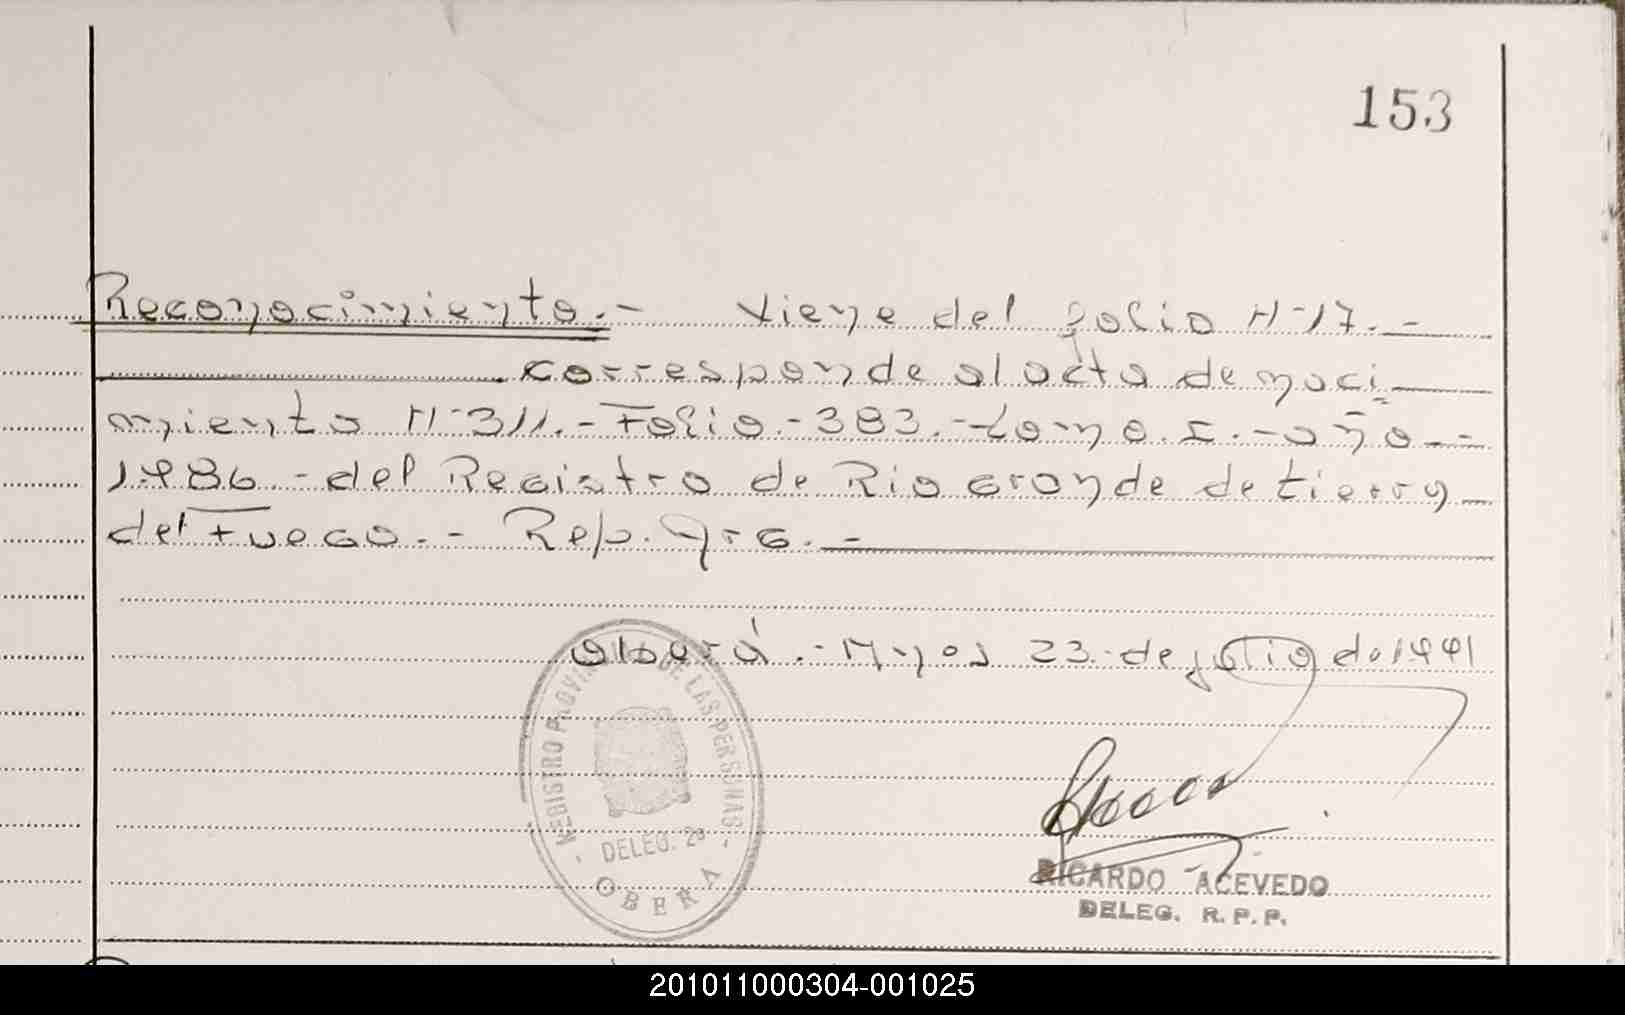 153
Reconocimiento.- Viene del folio Nº 17.-
corresponde al acta de naci
miento Nº 311.- Folio.- 383.- tomo. I.- año.-
1986 - del Registro de Rio Grande de tierra
del Fuego.- Rep. Arg.-
Oberá.- Mnes 23 de julio de 1991
REGISTRO PROVINCIAL DE LAS PERSONAS
- DELEG. 2ª -
OBERA
RICARDO ACEVEDO
DELEG. R. P. P.
201011000304-001025